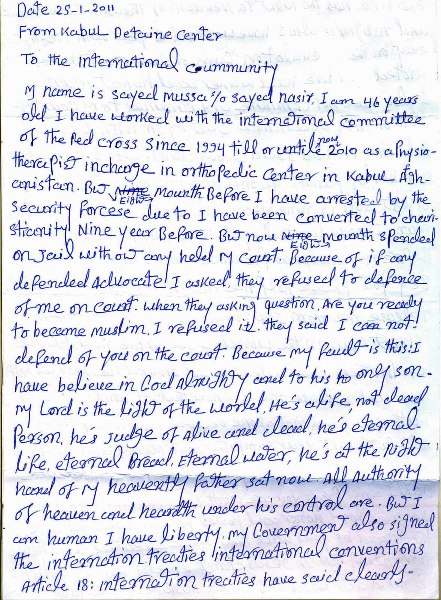 Date 25-1-2011
From Kabul Detaine Center
To the International community
My name is sayed mussa s/o sayed nasir. I am 46 years
old I have worked with the international committee
of the Red cross since 1994 till or until now 2010 as a physio-
therapist incharge in orthopedic center in Kabul Afgh-
anistan. But Nine Eight mounth Before I have arrested by the
security forcese due to I have been converted to chari-
stianity Nine year Before. But now Nine Eight mounth spended
on Jail without any held my court. Because of if any
defended advocate I asked, they refused to defence
of me on court. when they asking question, Are you ready
to became muslim, I refused it. they said I can not
defend of you on the court. Because my fault is this: I
have believe in God Almighty and to his only son.
my Lord is the light of the world, He's alife, not dead
Person, he's judge of alive and dead, he's eternal
life, eternal Bread, Eternal water, he's at the right
hand of my heavently father sat now. All authority
of heaven and hearth under his control are. But I
am human I have liberty. my Government also signed
the internation treaties international conventions
Article 18: internation treaties have said clearly-